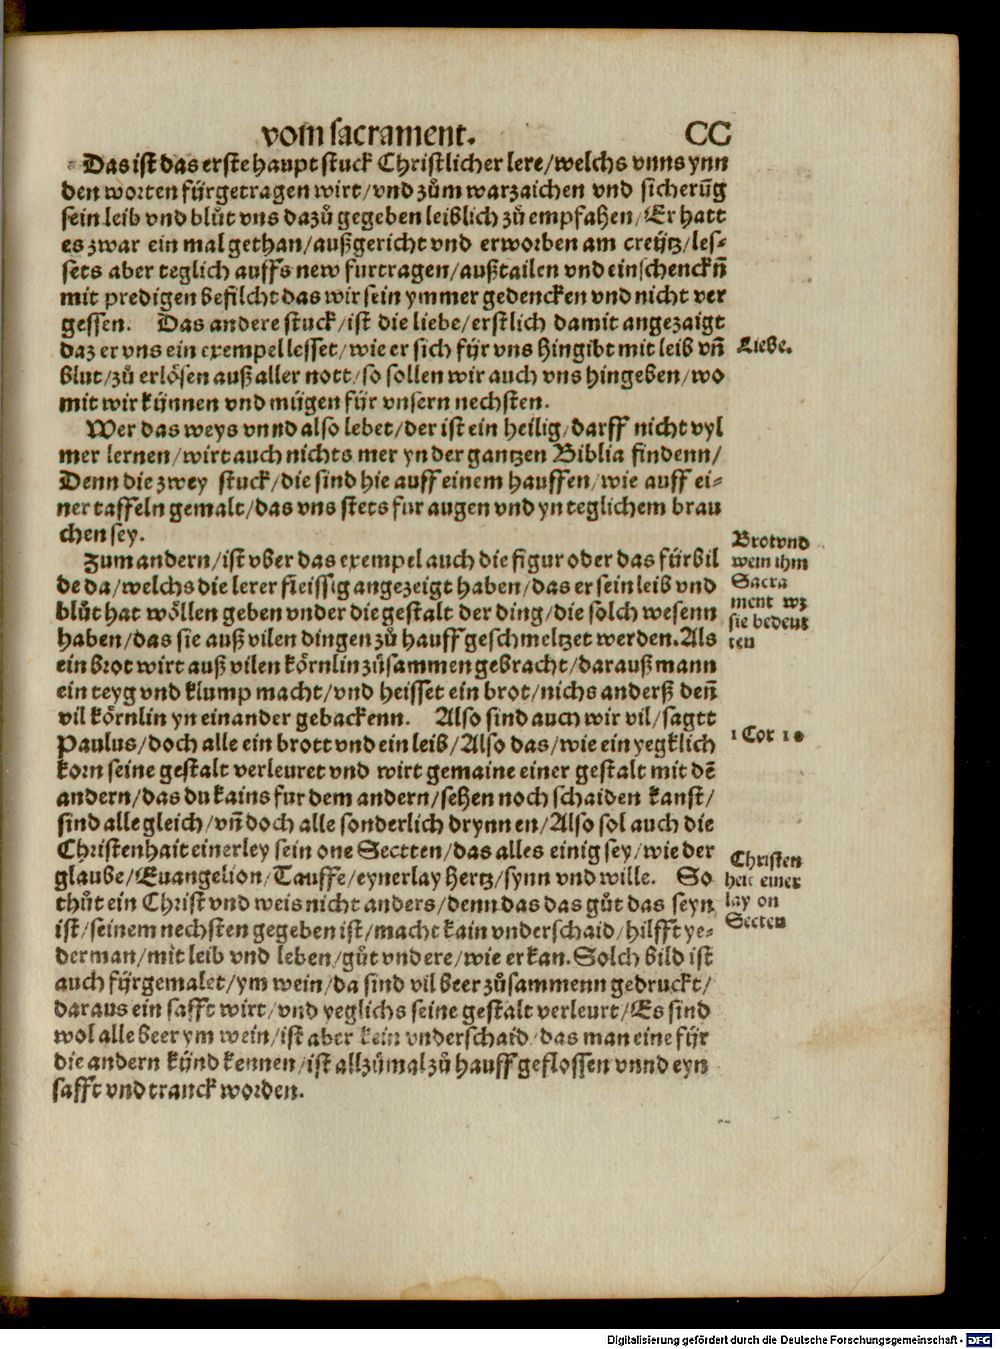 vom sacrament. CC
Das ist das erste haupt stuck Christlicher lere/welchs vnns ynn
den worten fürgetragen wirt/vnd zům warzaichen vnd sicherūg
sein leib vnd blůt vns dazů gegeben leiblich zů empfahen/Er hatt
es zwar ein mal gethan/außgericht vnd erworben am creütz/les-
sets aber teglich auffs new furtragen/außtailen vnd einschenckn̄
mit predigen befilcht das wir sein ymmer gedencken vnd nicht ver
gessen. Das andere stuck/ist die liebe/erstlich damit angezaigt
daz er vns ein exempel lesset/wie er sich für vns hingibt mit leib vn̄
Liebe.
blut/zů erlösen auß aller nott/so sollen wir auch vns hingeben/wo
mit wir künnen vnd mügen für vnsern nechsten.
Wer das weys vnnd also lebet/der ist ein heilig/darff nicht vyl
mer lernen/wirt auch nichts mer yn der gantzen Biblia findenn/
Denn die zwey stuck/die sind hie auff einem hauffen/wie auff ei-
ner taffeln gemalt/das vns stets fur augen vnd yn teglichem brau
chen sey.
Zum andern/ist vber das exempel auch die figur oder das fürbil
de da/welchs die lerer fleissig angezeigt haben/das er sein leib vnd
blůt hat wöllen geben vnder die gestalt der ding/die solch wesenn
haben/das sie auß vilen dingen zů hauff geschmeltzet werden. Als
ein brot wirt auß vilen körnlin zůsammen gebracht/darauß mann
ein teyg vnd klump macht/vnd heisset ein brot/nichs anderß den̄
vil körnlin yn einander gebackenn. Also sind auch wir vil/sagtt
Brot vnd
wein ihm
Sacra
ment wz
sie bedeut
ten
Paulus/doch alle ein brott vnd ein leib/Also das/wie ein yegklich
1 Cor 10
korn seine gestalt verleuret vnd wirt gemaine einer gestalt mit dē
andern/das du kains fur dem andern/sehen noch schaiden kanst/
sind alle gleich/vn̄ doch alle sonderlich drynnen/Also sol auch die
Christenhait einerley sein one Sectten/das alles einig sey/wie der
glaube/Euangelion/Tauffe/eynerlay hertz/synn vnd wille. So
thůt ein Christ vnd weis nicht anders/denn das das gůt das seyn
Christen
heit einer
lay on
Secten
ist/seinem nechsten gegeben ist/macht kain vnderschaid/hilfft ye-
derman/mit leib vnd leben/gůt vnd ere/wie er kan. Solch bild ist
auch fürgemalet/ym wein/da sind vil beer zůsammenn gedruckt/
daraus ein safft wirt/vnd yeglichs seine gestalt verleurt/Es sind
wol alle beer ym wein/ist aber kein vnderschaid/das man eine für
die andern künd kennen/ist allzůmal zů hauff geflossen vnnd eyn
safft vnd tranck worden.
Digitalisierung gefördert durch die Deutsche Forschungsgemeinschaft - DFG